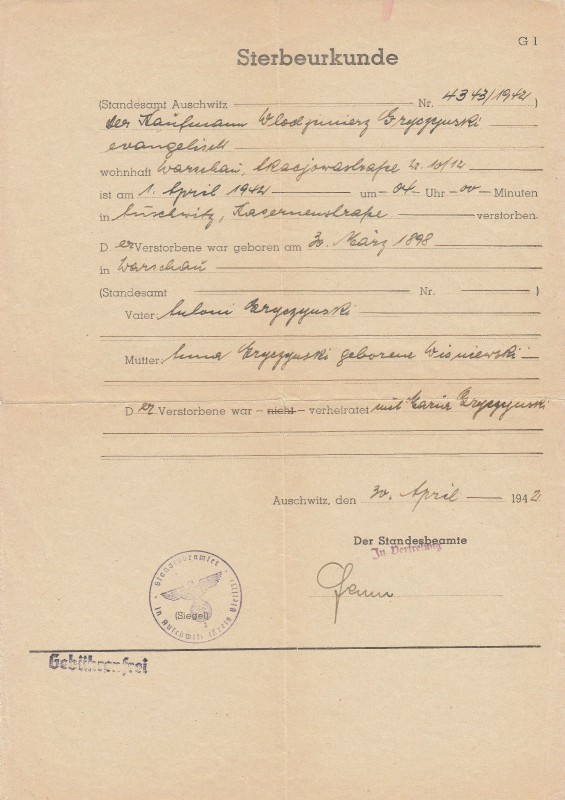 G 1
Sterbeurkunde
(Standesamt Auschwitz Nr. 4343/1942)
der Kaufmann Wlodzimierz Gryczynski
evangelisch
wohnhaft Warschau, Akacjowastraße Nr. 10/12
ist am 1. April 1942 um 04 Uhr 00 Minuten
in Auschwitz, Kasernenstraße verstorben.
Der Verstorbene war geboren am 30. März 1898
in Warschau
(Standesamt Nr. )
Vater: Antoni Gryczynski
Mutter: Anna Gryczynski geborene Wisniewski
Der Verstorbene war - nicht - verheiratet mit Maria Gryczynski
Auschwitz, den 30. April 1942
Der Standesbeamte
In Vertretung
Standesbeamter
in Auschwitz (Kreis
(Siegel)
Gebührenfrei